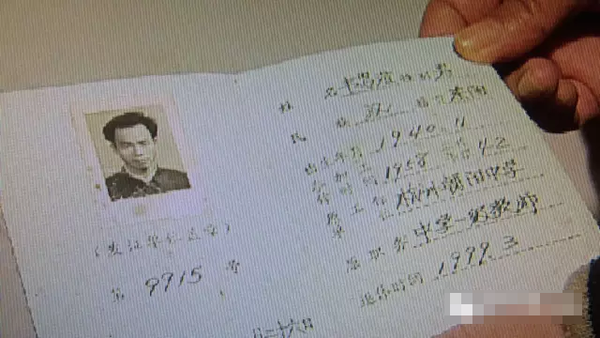 (发证单位盖章)
第 9915 号
月二十六日
姓名 性别 男
民族 汉 籍贯 东阳
出生年月 1940.11
参加工作时间 1958 42
原工作单位 杭州 中学
原职务 中学一级教师
退休时间 1999.3